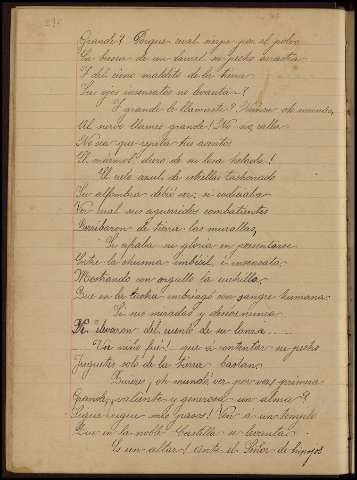 Grande? Porque cual sierpe por el polvo
En busca de un laurel su pecho arrastra
Y del cieno maldito de la tierra
Sus ojos insensatos no levanta?
Y grande le llamaste? Necio oh mundo,
Al siervo llamas grande! No, no, calla
No sea que repita tus acentos
El marmol duro de su losa helada!
El cielo azul, de estrellas tachonado
Su alfombra debió ser; si codiciaba
Ver cual sus aguerridos combatientes
Derribaron de tierra las murallas,
Si cifraba su gloria en presentarse
Entre la chusma imbécil é insensata
Mostrando con orgullo la cuchilla,
Que en la lucha embriagó con sangre humana.
Si sus miradas y deseos nunca
Se elevaron del cuento de su lanza.....
Un niño fué! que á contentar su pecho
Juguetes solo de la tierra bastan.
Quieres, oh mundo, ver por vez primera
Grande, valiente y generosa un alma?
Sigue, sigue mis pasos! Ven á un templo
Que en la noble Castilla se levanta.
Es un altar! Ante el Señor de hinojos